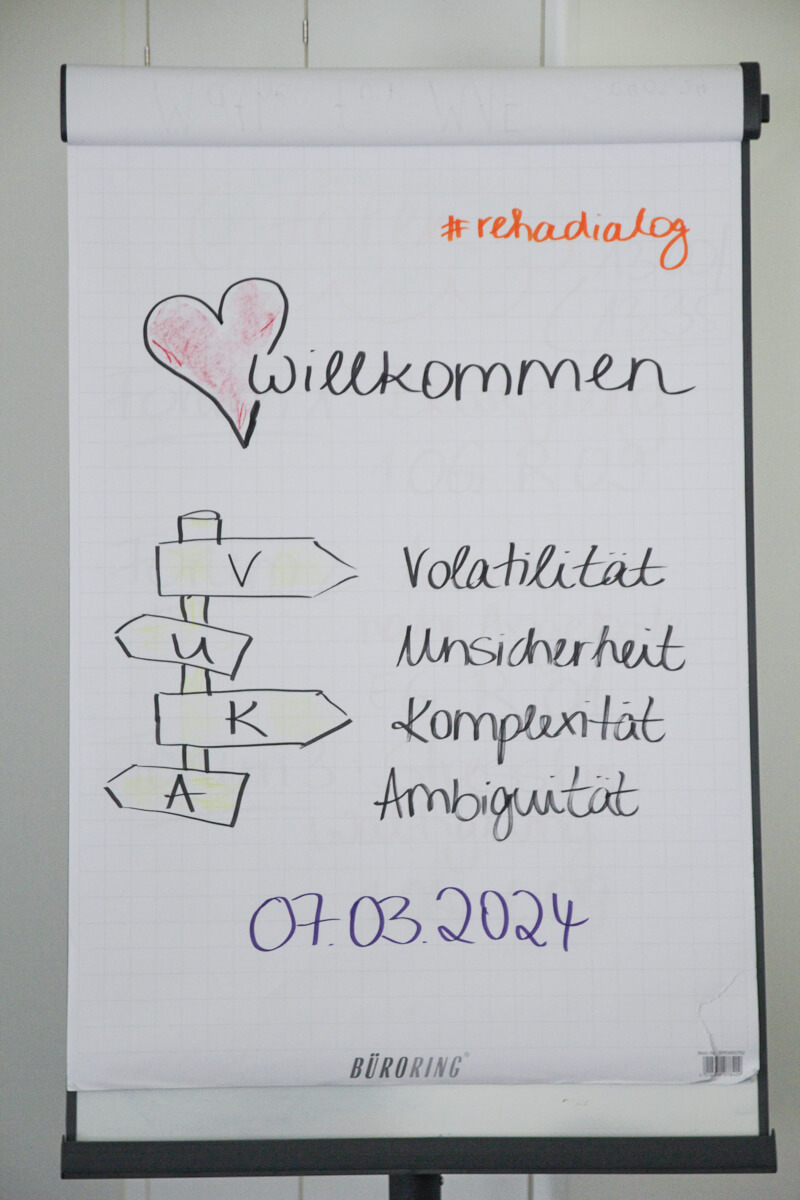 #rehadialog
willkommen
V Volatilität
U Unsicherheit
K Komplexität
A Ambiguität
07.03.2024
BÜRORING®